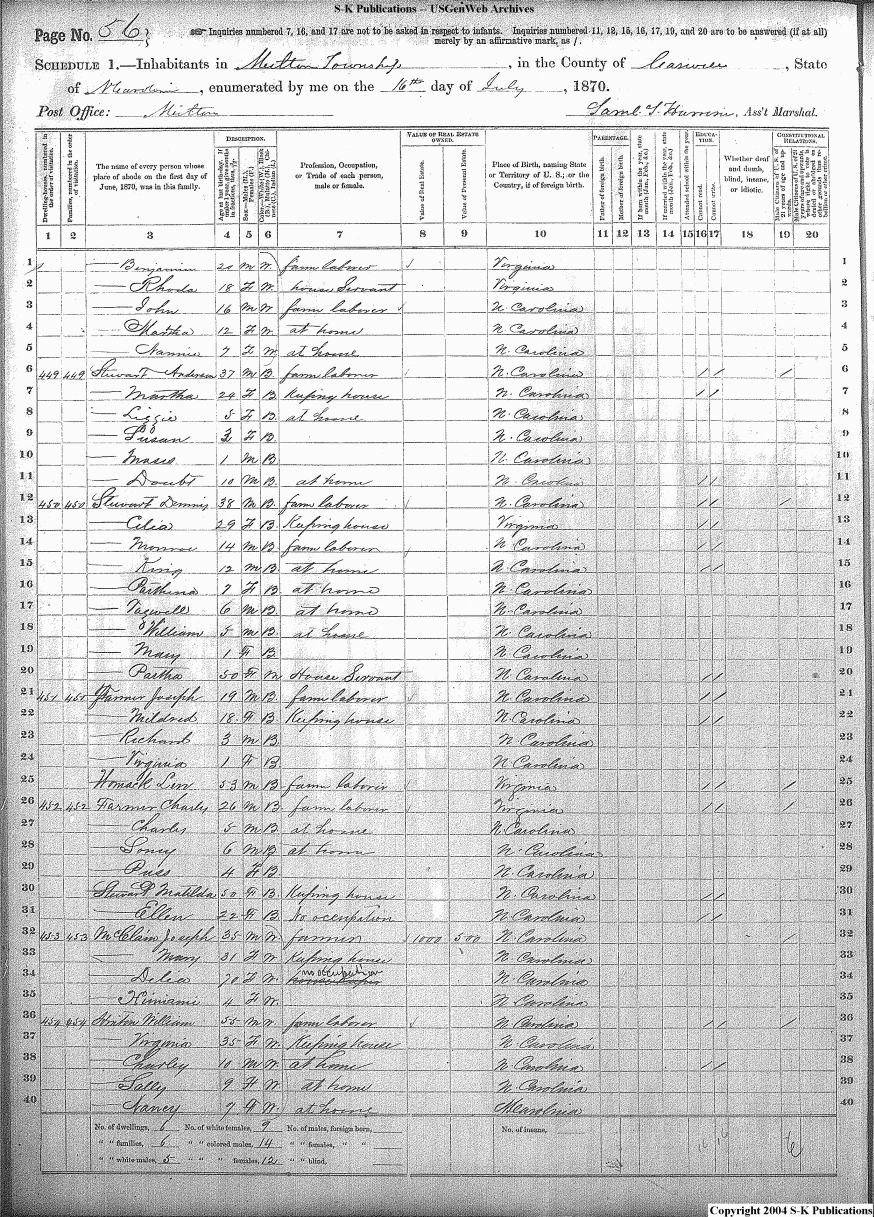 S-K Publications -- USGenWeb Archives
Page No. 56 } Inquiries numbered 7, 16, and 17 are not to be asked in respect to infants. Inquiries numbered 11, 12, 15, 16, 17, 19, and 20 are to be answered (if at all) merely by an affirmative mark, as /.
SCHEDULE 1.—Inhabitants in Milton Township, in the County of Caswell, State
of N Carolina, enumerated by me on the 16th day of July, 1870.
Post Office: Milton Saml, Ass't Marshal.
Dwelling-houses, numbered in the order of visitation.
Families, numbered in the order of visitation.
The name of every person whose place of abode on the first day of June, 1870, was in this family.
DESCRIPTION.
Profession, Occupation, or Trade of each person, male or female.
VALUE OF REAL ESTATE OWNED.
Value of Real Estate.
Value of Personal Estate.
Place of Birth, naming State or Territory of U. S.; or the Country, if of foreign birth.
PARENTAGE.
Father of foreign birth.
Mother of foreign birth.
If born within the year, state month (Jan., Feb., &c.)
If married within the year, state month (Jan., Feb., &c.)
Attended school within the year.
EDUCATION.
Cannot read.
Cannot write.
Whether deaf and dumb, blind, insane, or idiotic.
CONSTITUTIONAL RELATIONS.
1 2 3 4 5 6 7 8 9 10 11 12 13 14 15 16 17 18 19 20
1 — Benjamin 20 M W. farm laborer Virginia 1
2 — Rhoda 18 F W. house Servant Virginia 2
3 — John 16 M W farm laborer N Carolina 3
4 — Martha 12 F W. at home N Carolina 4
5 — Nannie 7 F W at home N. Carolina 5
6 449 449 Stewart Anderson 37 M B. farm laborer N. Carolina / / / 6
7 — Martha 24 F B. Keeping house N. Carolina / / 7
8 — Lizzie 5 F B. at home N. Carolina 8
9 — Susan F B. N. Carolina 9
10 — Moses 1 M B N. Carolina 10
11 — Doubt 10 M B. at home N. Carolina / / 11
12 450 450 Stewart Dennis 38 M B. farm laborer N. Carolina / / / 12
13 — Celia 29 F B. Keeping house Virginia / / 13
14 — Monroe 14 M B. farm laborer N Carolina / / 14
15 — King 12 M B. at home N. Carolina / / 15
16 — Parthena 7 F B. at home N. Carolina 16
17 — 6 M B. at home N-Carolina 17
18 — William 5 M B. at home N. Carolina 18
19 — Mary 1 F B N. Carolina 19
20 — Partha 50 F House Servant N Carolina / / 20
21 451 451 Farmer Joseph 19 M B. farm laborer N. Carolina / / 21
22 — Mildred 18 F B. Keeping house N. Carolina / / 22
23 — Richard 3 M B. N Carolina 23
24 — Virginia 1 F B. N Carolina 24
25 53 M B farm laborer Virginia / / / 25
26 452 452 Farmer Charles 26 M B. farm laborer Virginia / / / 26
27 — Charles 5 M B. at home N. Carolina 27
28 — 6 M B at home N. Carolina 28
29 — Puss 4 F B N. Carolina 29
30 Stewart Matilda 50 F B. Keeping house N. Carolina / / 30
31 — Ellen 22 F B. No occupation N. Carolina / / 31
32 453 453 McClain Joseph 35 M W. farmer 1000 500 N. Carolina / 32
33 — Mary 31 F W Keeping house N. Carolina 33
34 — Delia 70 F W. no occupation N. Carolina 34
35 — 4 F W. N Carolina 35
36 454 454 William 55 M W. farm laborer N Carolina / / / 36
37 — Virginia 35 F W. Keeping house N. Carolina 37
38 — Charley 10 M W. at home N. Carolina / / 38
39 — Sally 9 F W. at home N. Carolina 39
40 — Nancy 7 F W. at home N Carolina 40
No. of dwellings, 6 No. of white females, 9 No. of males, foreign born, No. of insane,
" " families, 6 " " colored males, 14 " " females, " "
" " white males, 5 " " " females, 12 " " blind,
6
Copyright 2004 S-K Publications